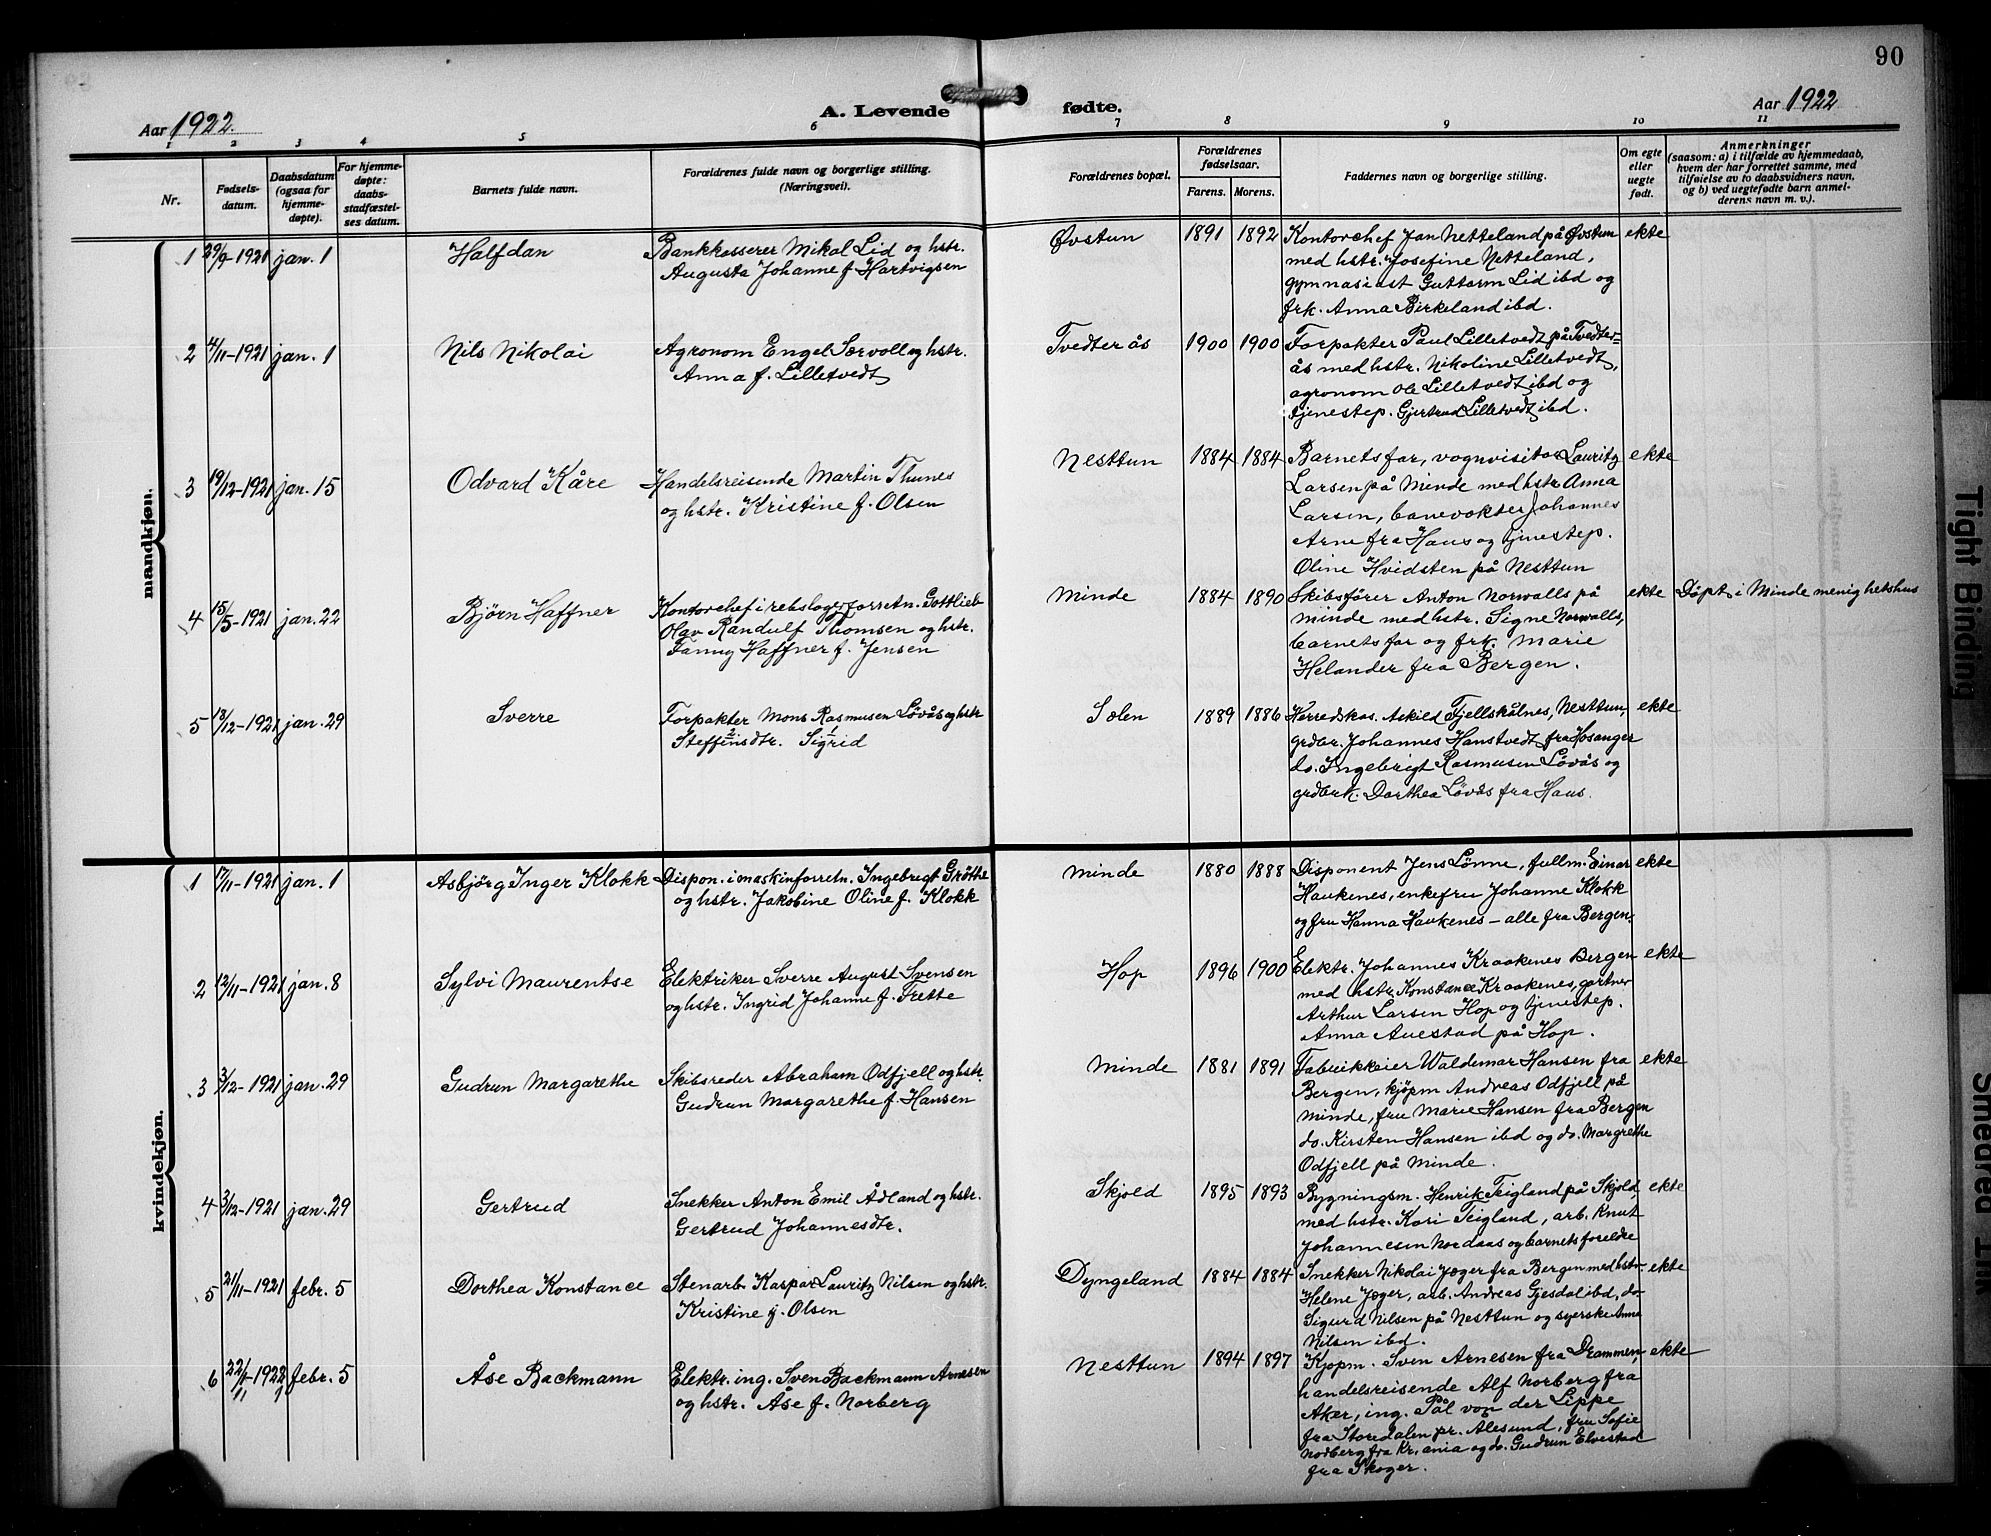 90
Aar 1922.
A. Levende fødte.
Aar 1922
1 2 3 4 5 6 7 8 9 10 11
Nr.
Fødsels-
datum.
Daabsdatum
(ogsaa for
hjemme-
døpte).
For hjemme-
døpte:
daabs-
stadfæstel-
ses datum.
Barnets fulde navn.
Forældrenes fulde navn og borgerlige stilling.
(Næringsvei).
Forældrenes bopæl.
Forældrenes
fødselsaar.
Farens. Morens.
Faddernes navn og borgerlige stilling.
Om egte
eller
uegte
født.
Anmerkninger
(saasom: a) i tilfælde av hjemmedaab,
hvem der har forrettet samme, med
tilføielse av to daabsvidners navn,
og b) ved uegtefødte barn anmel-
derens navn m. v.).
mandkjøn.
1 29/9-1921 jan. 1 Halfdan
Bankkasserer Mikal Lid og hstr.
Augusta Johanne f. Hartvigsen
Øvstun 1891 1892
Kontorchef Jan Netteland på Øvstun
med hstr. Josefine Netteland,
gymnasiast Guttorm Lid ibd og
frk. Anna Birkeland ibd.
ekte
2 4/11-1921 jan. 1 Nils Nikolai
Agronom Engel Sørvoll og hstr.
Anna f. Lilletvedt
Tvedterås 1900 1900
Forpakter Paul Lilletvedt på Tvedter=
ås med hstr. Nikoline Lilletvedt,
agronom Ole Lilletvedt ibd og
tjenestep. Gjertrud Lilletvedt ibd.
3 19/12-1921 jan. 15 Odvard Kåre
Handelsreisende Martin Thunes
og hstr. Kristine f. Olsen
Nesttun 1884 1884
Barnets far, vognvisitør Lauritz
Larsen på Minde med hstr Anna
Larsen, banevokter Johannes
Arne fra Haus og tjenestep.
Oline Hvidsten på Nesttun
ekte
4 15/5-1921 jan. 22 Bjørn Haffner
Kontorchef i rebslagerforretn. Gottlieb
Olav Randulf Thomsen og hstr.
Fanny Haffner f. Jensen
Minde 1884 1890
Skibsfører Anton Norwalls på
Minde med hstr. Signe Norwalls,
barnets far og frk. Marie
Helander fra Bergen.
ekte
Döpt i Minde menighetshus
5 18/12-1921 jan. 29 Sverre
Forpakter Mons Rasmusen Lövås og hstr
2 1
Steffensdtr. Sigrid
Sælen 1889 1886
Herredskas. Askild Fjellskålnes, Nesttun,
grdbr. Johannes Hanstvedt fra Hosanger
do. Ingebrigt Rasmusen Lövås og
grdbrk. Dorthea Lövås fra Haus.
ekte
kvindekjøn.
1 17/11-1921 jan. 1 Asbjörg Inger Klokk
Dispon. i maskinforretn. Ingebrigt Gröthe
og hstr. Jakobine Oline f. Klokk
Minde 1880 1888
Disponent Jens Lønne, fullm. Einar
Haukenes, enkefru Johanne Klokk
og fru Hanna Haukenes – alle fra Bergen.
ekte
2 12/11-1921 jan. 8 Sylvi Maurentse
Elektriker Sverre August Svensen
og hstr. Ingrid Johanne f. Frette
Hop 1896 1900
Elektr. Johannes Kraakenes Bergen
med hstr. Konstance Kraakenes, gartner
Arthur Larsen Hop og tjenestep.
Anna Auestad på Hop.
ekte
3 3/12-1921 jan. 29 Gudrun Margarethe
Skibsreder Abraham Odfjell og hstr.
Gudrun Margarethe f. Hansen
Minde 1881 1891
Fabrikkeier Waldemar Hansen fra
Bergen, kjøpm Andreas Odfjell på
Minde, fru Marie Hansen fra Bergen
do. Kirsten Hansen ibd og do. Margrethe
Odfjell på Minde.
ekte
4 3/12-1921 jan. 29 Gertrud
Snekker Anton Emil Ådland og hstr.
Gertrud Johannesdtr.
Skjold 1895 1893
Bygningsm. Henrik Teigland på Skjold,
med hstr. Kari Teigland, arb. Knut
Johannesen Nordaas og barnets foreldre
ekte
5 21/11-1921 febr. 5 Dorthea Konstance
Stenarb. Kaspar Lauritz Nilsen og hstr.
Kristine f. Olsen
Dyngeland 1884 1884
Snekker Nikolai Jæger fra Bergen med hstr
Helene Jæger, arb. Andreas Gjesdal ibd, do
Sigurd Nilsen på Nesttun og syerske Anna
Nilsen ibd.
ekte
6 febr. 5 Åse Backmann
Elektr. ing. Sven Backmann Arnesen
og hstr. Åse f. Norberg
Nesttun 1894 1897
Kjøpm. Sven Arnesen fra Drammen,
handelsreisende Alf Norberg fra
Aker, ing. Pål von der Lippe
fra Storedalen pr. Ålesund, fru Sofie
Norberg fra Kr.ania og do. Gudrun Elvestad
fra Skoger.
ekte
Tight Binding
Smeared Ink